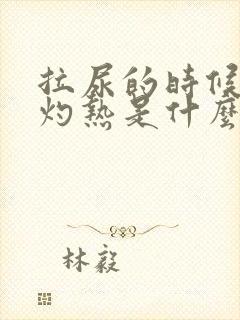 拉尿的時候
灼熱是什麼
林毅